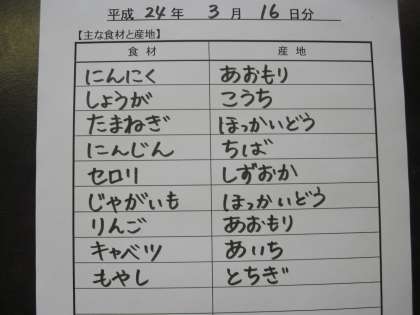 平成 24 年 3 月 16 日分
【主な食材と産地】
食材 産地
にんにく あおもり
しょうが こうち
たまねぎ ほっかいどう
にんじん ちば
セロリ しずおか
じゃがいも ほっかいどう
りんご あおもり
キャベツ あいち
もやし とちぎ